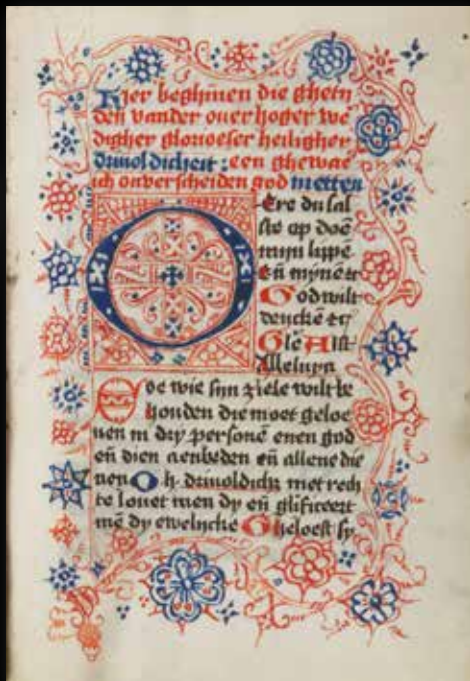 Hier beghinnen die ghetij
den vander ouer hoger we
digher glorioeser heiligher
drivoldicheit : een ghewae
ich onverscheiden god metten
Ere du sal
ste op doē
mijn lippē
Eñ mynē
God wilt
dencke
Gle Alst
Alleluya
Soe wie sijn ziele wilt be
houden die moet geloe
uen in dry personē enen god
eñ dien aenbeden eñ allene die
nen O h. drivoldich met rech
te louet men dy eñ glificeert
mē dy ewelycke Gheloeft sy